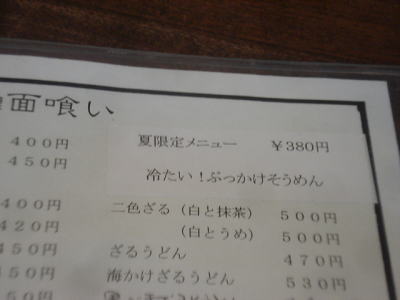 面喰い
400円
450円
夏限定メニュー ¥380円
冷たい!ぶっかけそうめん
400円
420円
450円
450円
50円
二色ざる(白と抹茶) 500円
(白とうめ) 500円
ざるうどん 470円
海かけざるうどん 530円